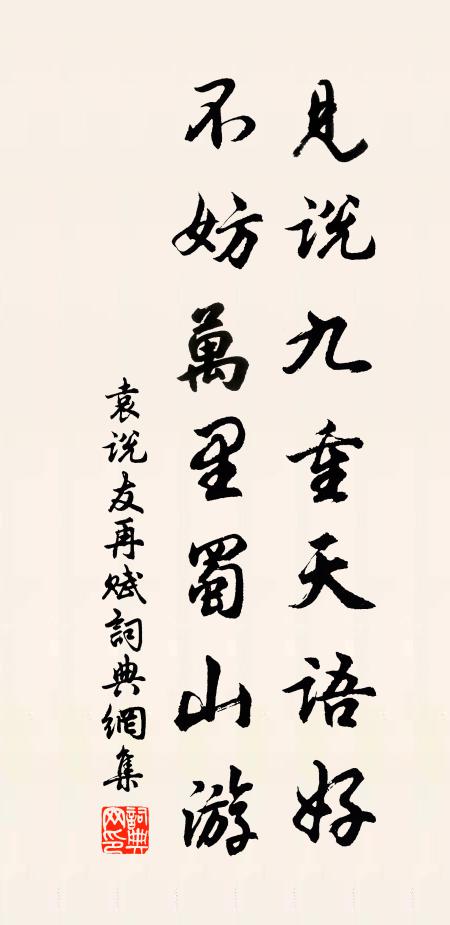 見说九重天语好
不妨萬里蜀山游
袁说友再赋詞典網集
詞典网印